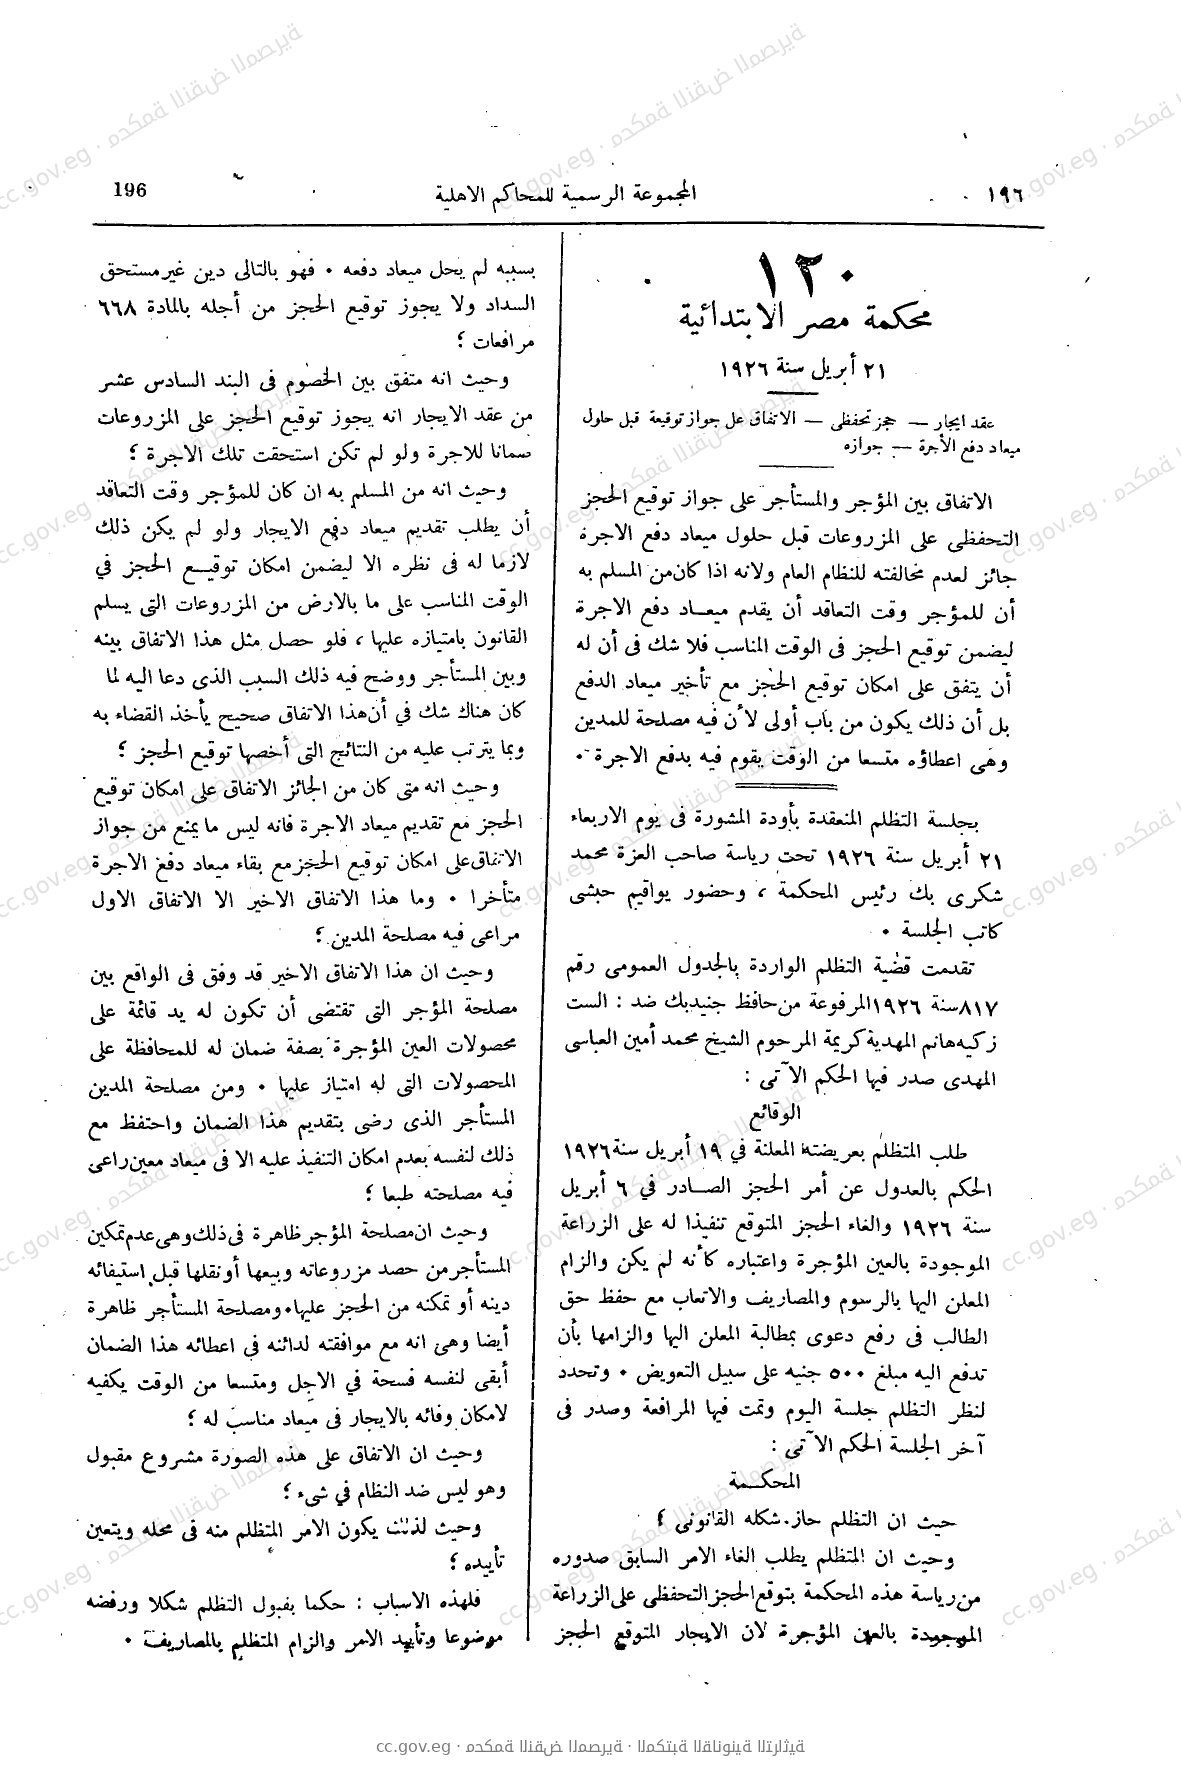 ١٩٦
المجموعة الرسمية للمحاكم الاهلية
196
١٢٠
محكمة مصر الابتدائية
٢١ أبريل سنة ١٩٢٦
عقد ايجار — حجز تحفظى — الاتفاق على جواز توقيعة قبل حلول
ميعاد دفع الأجرة — جوازه
الاتفاق بين المؤجر والمستأجر على جواز توقيع الحجز
التحفظى على المزروعات قبل حلول ميعاد دفع الاجرة
جائز لعدم مخالفته للنظام العام ولانه اذا كان من المسلم به
أن للمؤجر وقت التعاقد أن يقدم ميعاد دفع الاجرة
ليضمن توقيع الحجز فى الوقت المناسب فلا شك فى أن له
أن يتفق على امكان توقيع الحجز مع تأخير ميعاد الدفع
بل أن ذلك يكون من باب أولى لأن فيه مصلحة للمدين
وهى اعطاؤه متسعا من الوقت يقوم فيه بدفع الاجرة ٠
بجلسة التظلم المنعقدة بأودة المشورة فى يوم الاربعاء
٢١ أبريل سنة ١٩٢٦ تحت رياسة صاحب العزة محمد
شكرى بك رئيس المحكمة ، وحضور يواقيم حبشى
كاتب الجلسة ٠
تقدمت قضية التظلم الواردة بالجدول العمومى رقم
٨١٧ سنة ١٩٢٦ المرفوعة من حافظ جنيدبك ضد : الست
زكيه هانم المهدية كريمة المرحوم الشيخ محمد أمين العباسى
المهدى صدر فيها الحكم الآتى :
الوقائع
طلب المتظلم بعريضته المعلنة في ١٩ أبريل سنة ١٩٢٦
الحكم بالعدول عن أمر الحجز الصادر في ٦ أبريل
سنة ١٩٢٦ والغاء الحجز المتوقع تنفيذا له على الزراعة
الموجودة بالعين المؤجرة واعتباره كأنه لم يكن والزام
المعلن اليها بالرسوم والمصاريف والاتعاب مع حفظ حق
الطالب فى رفع دعوى بمطالبة المعلن اليها والزامها بأن
تدفع اليه مبلغ ٥٠٠ جنيه على سبيل التعويض ٠ وتحدد
لنظر التظلم جلسة اليوم وتمت فيها المرافعة وصدر فى
آخر الجلسة الحكم الآتى :
المحكمة
حيث ان التظلم حاز شكله القانونى ؛
وحيث ان المتظلم يطلب الغاء الامر السابق صدوره
من رياسة هذه المحكمة بتوقع الحجز التحفظى على الزراعة
الموجودة بالعين المؤجرة لان الايجار المتوقع الحجز
بسببه لم يحل ميعاد دفعه ٠ فهو بالتالى دين غير مستحق
السداد ولا يجوز توقيع الحجز من أجله بالمادة ٦٦٨
مرافعات ؛
وحيث انه متفق بين الخصوم فى البند السادس عشر
من عقد الايجار انه يجوز توقيع الحجز على المزروعات
ضمانا للاجرة ولو لم تكن استحقت تلك الاجرة ؛
وحيث انه من المسلم به ان كان للمؤجر وقت التعاقد
أن يطلب تقديم ميعاد دفع الايجار ولو لم يكن ذلك
لازما له فى نظره الا ليضمن امكان توقيع الحجز في
الوقت المناسب على ما بالارض من المزروعات التى يسلم
القانون بامتيازه عليها ، فلو حصل مثل هذا الاتفاق بينه
وبين المستأجر ووضح فيه ذلك السبب الذى دعا اليه لما
كان هناك شك في أن هذا الاتفاق صحيح يأخذ القضاء به
وبما يترتب عليه من النتائج التى أخصها توقيع الحجز ؛
وحيث انه متى كان من الجائز الاتفاق على امكان توقيع
الحجز مع تقديم ميعاد الاجرة فانه ليس ما يمنع من جواز
الاتفاق على امكان توقيع الحجز مع بقاء ميعاد دفع الاجرة
متأخرا ٠ وما هذا الاتفاق الاخير الا الاتفاق الاول
مراعى فيه مصلحة المدين ؛
وحيث ان هذا الاتفاق الاخير قد وفق فى الواقع بين
مصلحة المؤجر التى تقتضى أن تكون له يد قائمة على
محصولات العين المؤجرة بصفة ضمان له للمحافظة على
المحصولات التى له امتياز عليها ٠ ومن مصلحة المدين
المستأجر الذى رضى بتقديم هذا الضمان واحتفظ مع
ذلك لنفسه بعدم امكان التنفيذ عليه الا فى ميعاد معين راعى
فيه مصلحته طبعا ؛
وحيث ان مصلحة المؤجر ظاهرة فى ذلك وهى عدم تمكين
المستأجر من حصد مزروعاته وبيعها أو نقلها قبل استيفائه
دينه أو تمكنه من الحجز عليها ٠ ومصلحة المستأجر ظاهرة
أيضا وهى انه مع موافقته لدائنه فى اعطائه هذا الضمان
أبقى لنفسه فسحة في الاجل ومتسعا من الوقت يكفيه
لامكان وفائه بالايجار فى ميعاد مناسب له ؛
وحيث ان الاتفاق على هذه الصورة مشروع مقبول
وهو ليس ضد النظام في شىء ؛
وحيث لذلك يكون الامر المتظلم منه فى محله ويتعين
تأييده ؛
فلهذه الاسباب : حكما بقبول التظلم شكلا ورفضه
موضوعا وتأييد الامر والزام المتظلم بالمصاريف ٠
cc.gov.eg · محكمة النقض المصرية · المكتبة القانونية التراثية